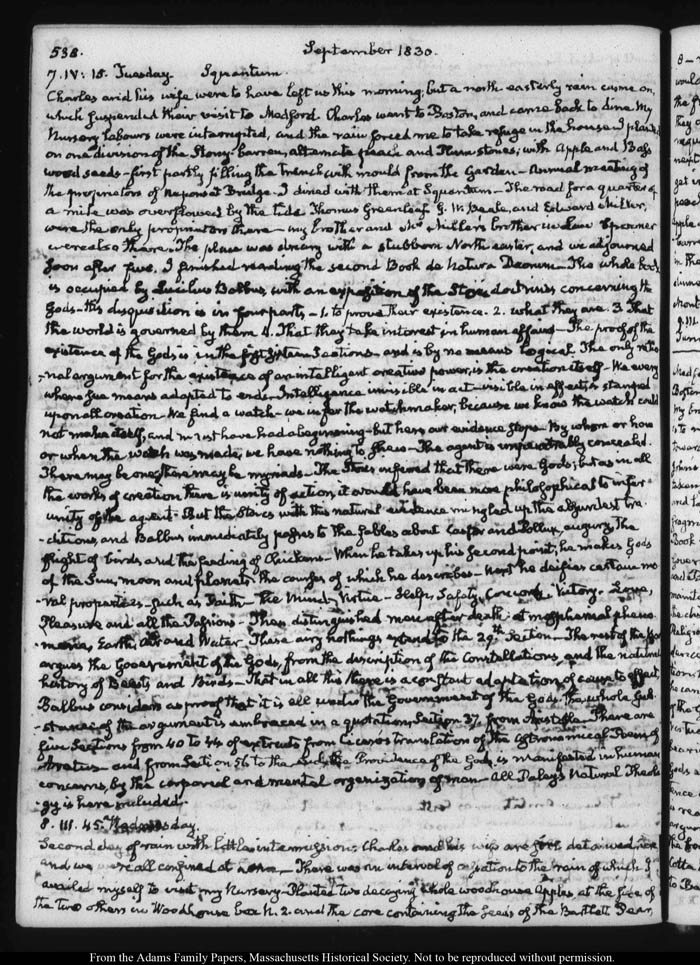 538.
September 1830.
7. IV: 15. Tuesday. Squantum.
Charles and his wife were to have left us this morning, but a north easterly rain came on,
which suspended their visit to Medford. Charles went to Boston, and came back to dine. My
Nursery labours were interrupted, and the rain forced me to take refuge in the house. I planted
on one division of the Stony-barren, alternate peach and Plum stones; with Apple and Bass
wood seeds—first partly filling the trench with mould from the Garden—Annual meeting of
the proprietors of Neponset Bridge. I dined with them at Squantum—The road for a quarter of
a mile was overflowed by the tide. Thomas Greenleaf, G. W. Beale, and Edward Miller,
were the only proprietors there—my brother and Mr Miller's brother in Law Spooner
were also there. The place was dreary with a stubborn North easter, and we adjourned
soon after five. I finished reading the second Book de Natura Deorum—The whole book
is occupied by Lucilius Balbus, with an exposition of the Stoic doctrines concerning the
Gods—this disquisition is in four parts—1. to prove their existence. 2. what they are. 3 That
the world is governed by them 4. That they take interest in human affairs—The proof of the
existence of the Gods is in the first Sections—and is by no means Logical. The only ratio-
-nal argument for the existence of an intelligent creative power, is the creation itself—We every
where see means adapted to ends. Intelligence invisible in act—visible in effect, is stamped
upon all creation—We find a watch—we infer the watchmaker, because we know the watch could
not make itself, and must have had a beginning—but here our evidence stops. By whom or how
or when the watch was made, we have nothing to shew—The agent is impenetrably concealed.
There may be one, there may be myriads—The Stoics inferred that there were Gods; but as in all
the works of creation there is unity of action, it would have been more philosophical to infer
unity of the agent—But the Stoics with this natural evidence mingled up the absurdest tra-
-ditions, and Balbus immediately passes to the fables about Castor and Pollux, augury, the
flight of birds and the feeding of Chickens—When he takes up his second point, he makes Gods
of the Sun, moon and planets the courses of which he describes—Next he deifies certain mo-
-ral properties—such as Faith—the Mind—Virtue—Help, Safety, Concord, Victory—Love,
Pleasure and all the Passions—Then distinguished men after death
-mena, Earth, Air and Water. These airy nothings extend to the 29th Section—The rest of the Book
argues the Government of the Gods, from the description of the Constellations, and the natural
history of Beasts and Birds—That in all this there is a constant adaptation of cause to effect,
Balbus considers as proof that it is all under the Government of the Gods. The whole sub-
-stance of the argument is embraced in a quotation, Section 37 from Aristotle. There are
five Sections from 40 to 44 of extracts from Cicero's translation of the Astronomical Poem of
Aratus—and from Section 56 to the end, the Providence of the Gods, is manifested in human
concerns, by the corporeal and mental organization of man—All Paley's Natural Theolo
-gy is here included.
8. III. 45. Wednesday.
Second day of rain with little intermission. Charles and his wife are still detained here
and we were all confined at home—There was an interval of cessation to the rain of which I
availed myself to visit my Nursery. Planted two decaying whole woodhouse Apples at the side of
the two others in Woodhouse box N. 2. and the core containing the seeds of the Bartlett Pear,
From the Adams Family Papers, Massachusetts Historical Society. Not to be reproduced without permission.